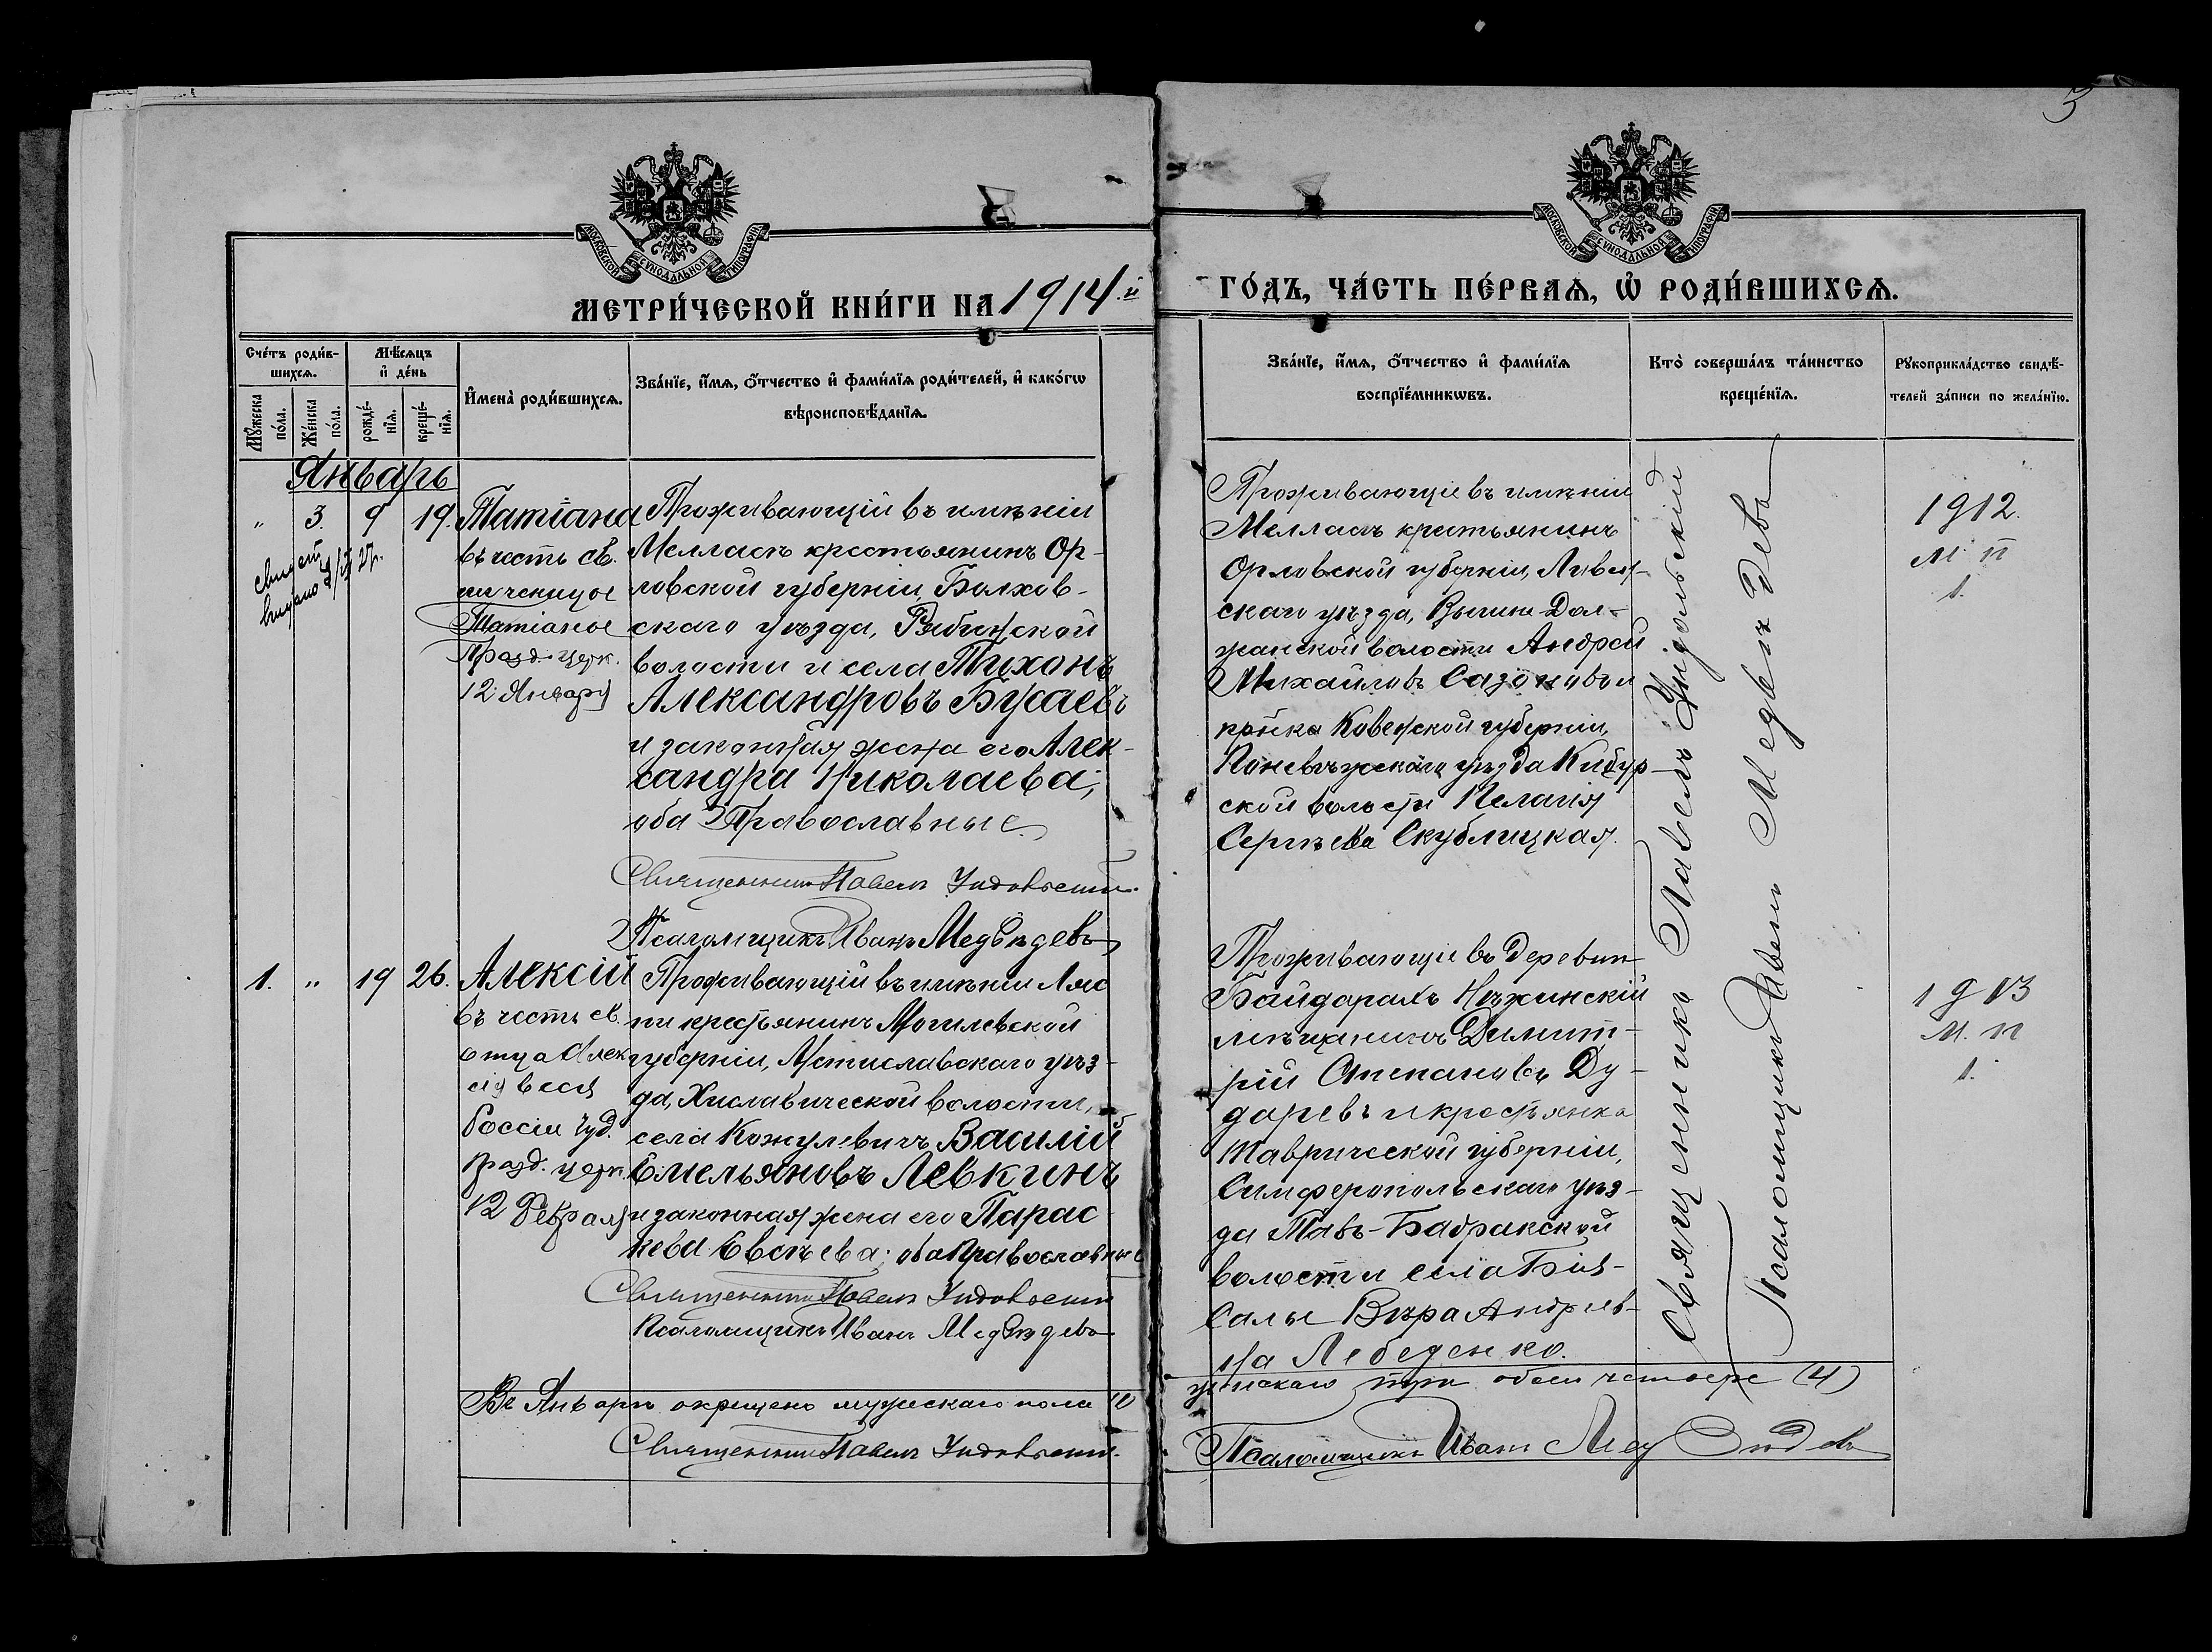 3
МОСКОВСКОЙ СѴНОДАЛЬНОЙ ТИПОГРАФІИ
МОСКОВСКОЙ СѴНОДАЛЬНОЙ ТИПОГРАФІИ
МЕТРИ́ЧЕСКОЙ КНИ́ГИ НА 1914.й
ГО́ДЪ, ЧА́СТЬ ПЕ́РВАѦ, Ѡ҆ РОДИ́ВШИХСѦ.
Сче́тъ роди́в-
шихсѧ.
Мѣ́сѧцъ
и҆ де́нь
Мꙋ́жеска
по́ла.
Же́нска
по́ла.
рожде́-
нїѧ.
креще́-
нїѧ.
И҆мена̀ роди́вшихсѧ.
Зва́нїе, и҆́мѧ, ѻ҆́тчество и҆ фами́лїѧ роди́телей, и҆ како́гѡ
вѣроисповѣ́данїѧ.
Зва́нїе, и҆́мѧ, ѻ҆́тчество и҆ фами́лїѧ
воспрїе́мникѡвъ.
Кто̀ соверша́лъ та́инство
креще́нїѧ.
Рꙋкоприкла́дство свидѣ́-
телей за́писи по жела́нїю.
Январь
" 3. 9 19.
Татіана
въ честь св.
мученицы
Татіаны
Празд. церк.
12 Января
Проживающій въ имѣніи
Мелласъ крестьянинъ Ор-
ловской губерніи, Болхов-
скаго уѣзда, Рябинской
волости и села Тихонъ
Александровъ Бусаевъ
и законная жена его Алек-
сандра Николаева;
оба Православные.
Священникъ Павелъ Ундольскій
Псаломщикъ Иванъ Медвѣдевъ
Проживающіе въ имѣніи
Мелласъ крестьянинъ
Орловской губерніи, Ливен-
скаго уѣзда, Вышне-Дол-
жанской волости Андрей
Михайловъ Сазоновъ и
кр-нка Ковенской губерніи,
Поневѣжскаго уѣзда
ской волости Пелагія
Сергѣева Скублицкая.
Священникъ Павелъ Ундольскій
Псаломщикъ Иванъ Медвѣдевъ
1912.
м. п
1.
1. " 19 26.
Алексій
въ честь св.
отца Алек
сія всея
Россіи чуд.
празд. церк.
12 Февраля
Проживающій въ имѣніи Лас
пи крестьянинъ Могилевской
губерніи, Мстиславскаго уѣз-
да, Хиславической волости,
села Кожулевичъ Василій
Емельяновъ Левкинъ
и законная жена его Парас
кева Евсѣева; оба Православные
Священникъ Павелъ Ундольскій
Псаломщикъ Иванъ Медвѣдевъ
Проживающіе въ деревнѣ
Байдарахъ Нѣжинскій
мѣщанинъ Димит-
рій Степановъ Ду-
даревъ и крестьянка
Таврической губерніи,
Симферопольскаго уѣз-
да Тавъ-Бадракской
волости села Бія-
Салы Вѣра Андреев-
на Лебеденко.
1913
м. п
1.
Въ Январѣ окрещено мужскаго пола
женскаго три обоего четверо (4)
Священникъ Павелъ Ундольскій.
Псаломщикъ Иванъ Медвѣдевъ